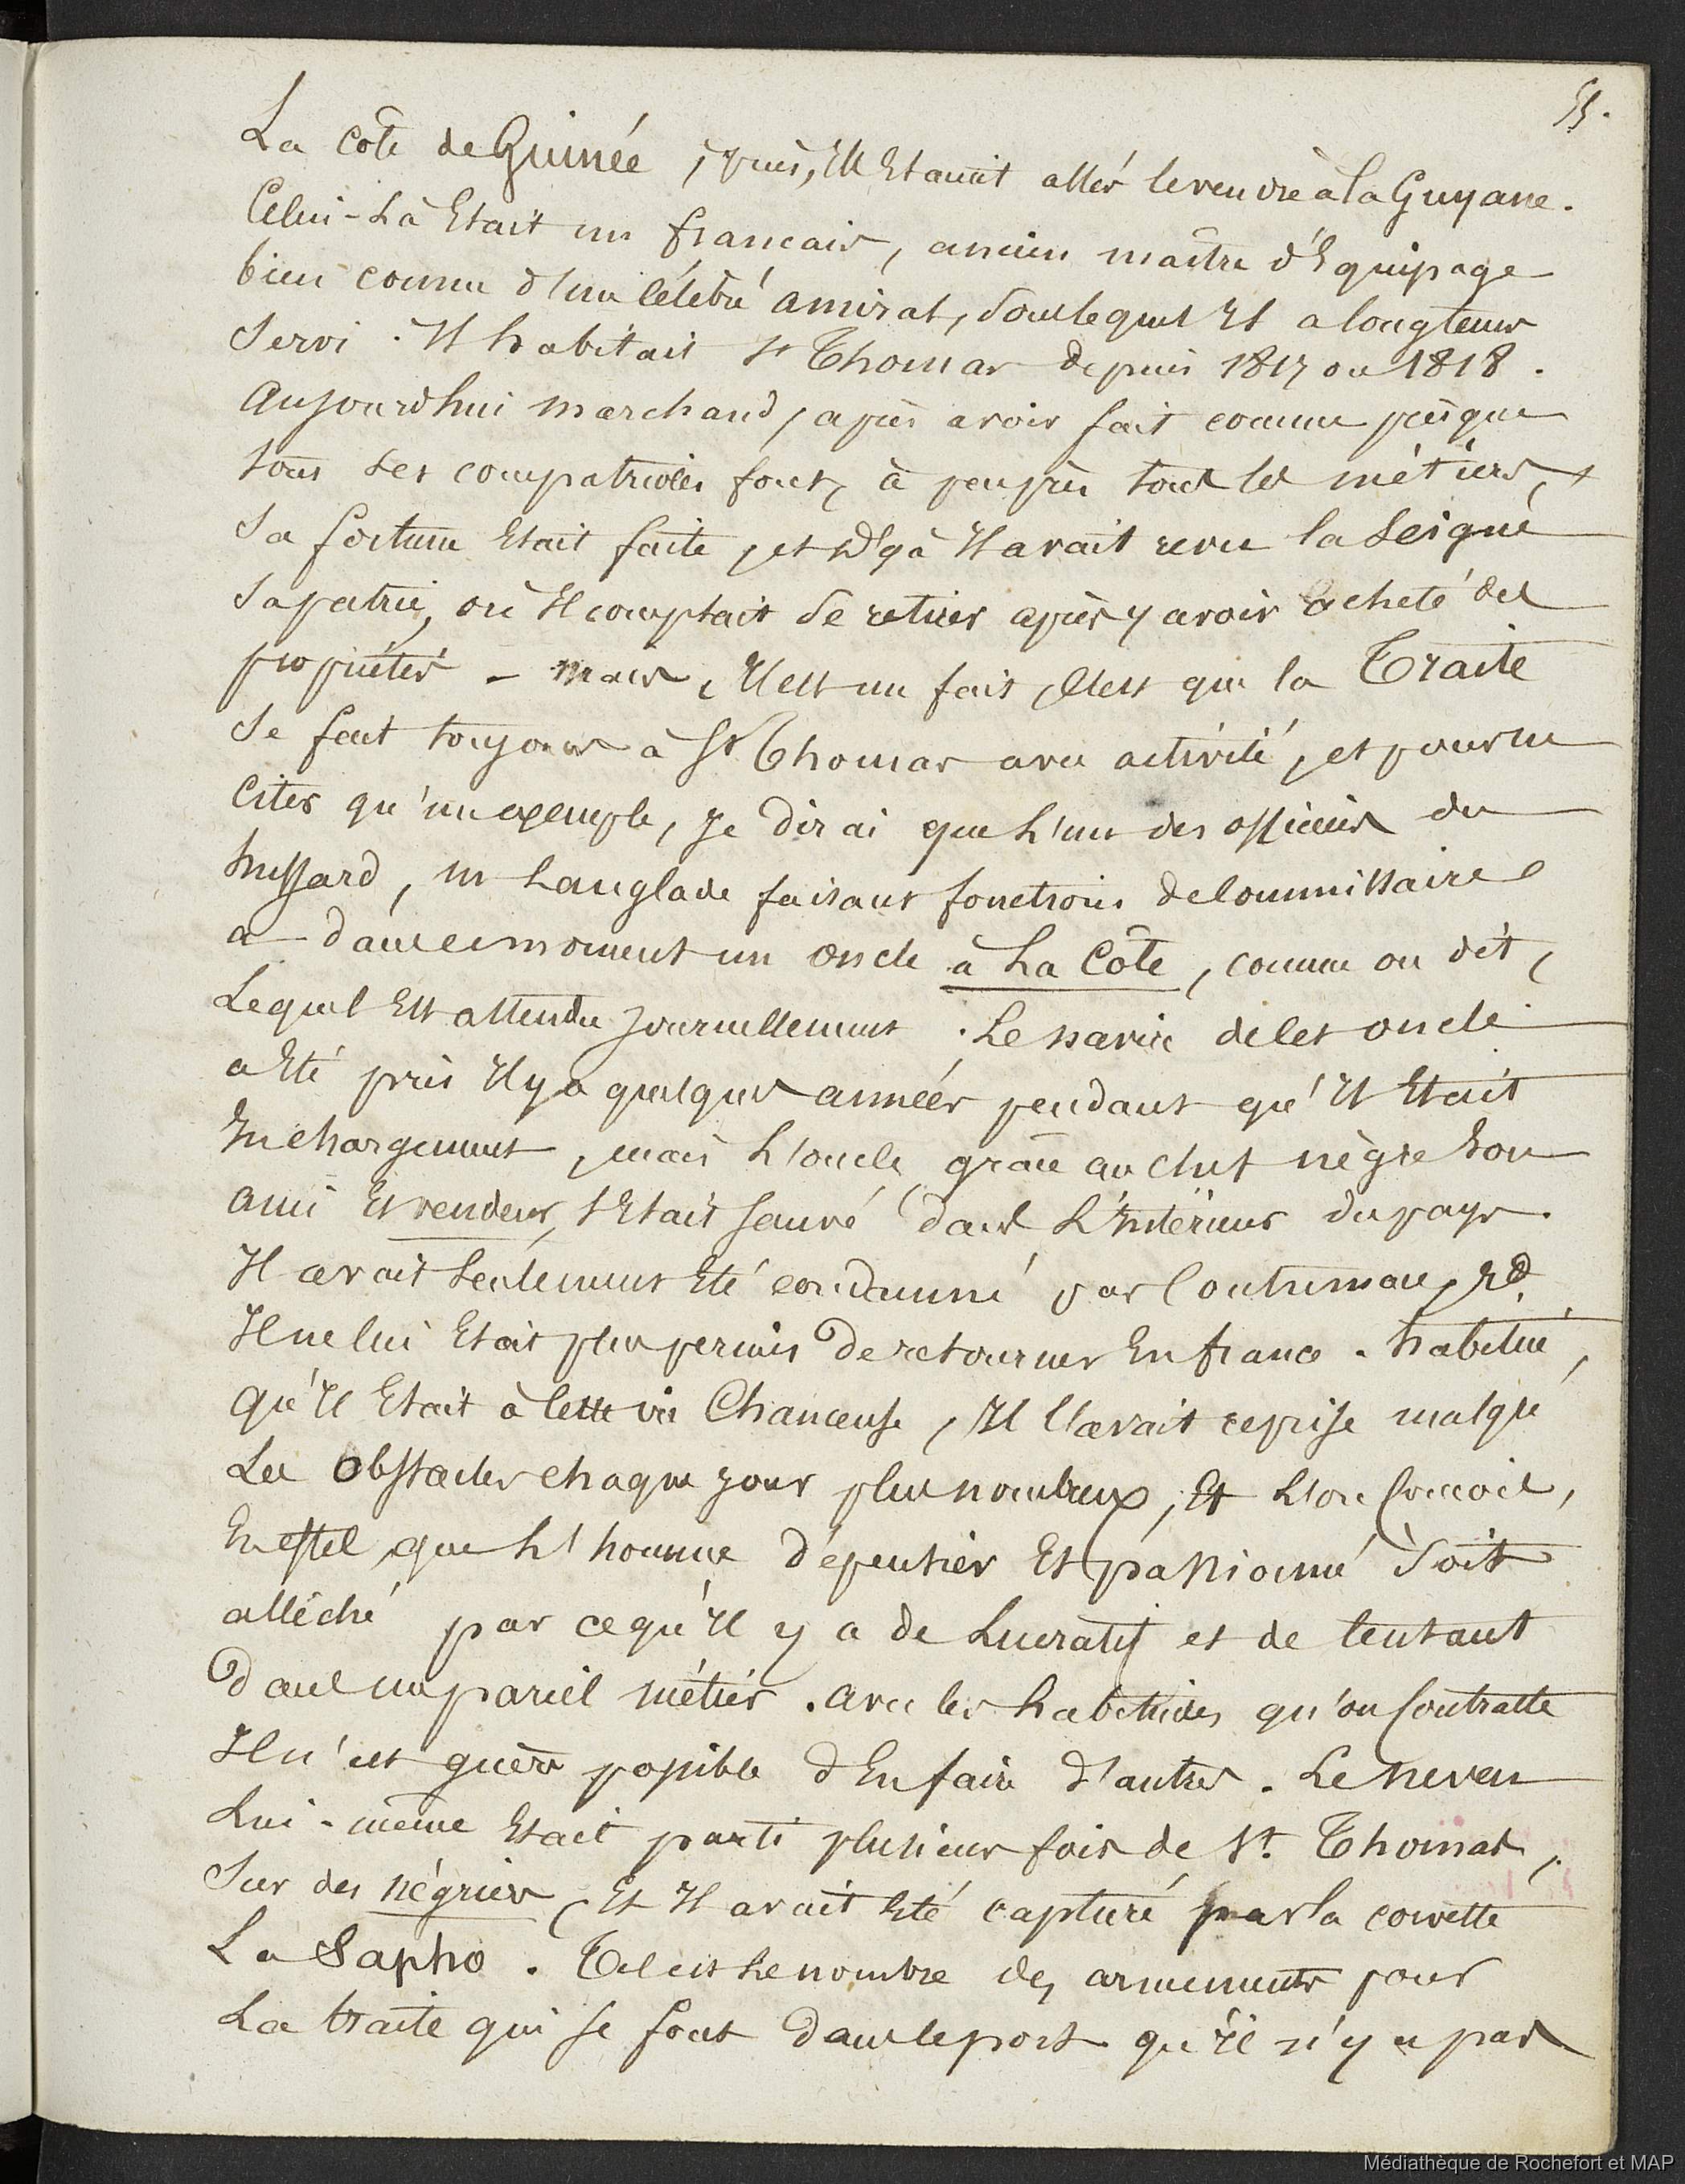 La côte de Guinée, puis, Il était allé le vendre à la Guyane.
Celui-là Etait un français, ancien maître d'Equipage
bien connu d'un célèbre amiral, sous lequel Il a longtems
servi. Il habitait St Thomas depuis 1817 ou 1818.
Aujourdhui marchand, après avoir fait comme presque
tous ses compatriotes font, à peu près tous les métiers,
Sa fortune Etait faite, et déjà Il avait revu la Seigne
Sa patrie, où Il comptait Se retirer après y avoir acheté des
propriétés - mais, Il est un fait, C'est que la Traite
Se fait toujours à St Thomas avec activité, et pour ne
Citer qu'un exemple, Je dirai que L'un des officiers du
hussard, Mr Langlade faisant fonctions de Commissaire
a dans ce moment un oncle à La Côte, comme on dit,
Lequel Est attendu Journellement. Le navire de Cet oncle
a Eté pris Il y a quelques années pendant qu'Il Etait
En chargement, mais L'oncle, grâce au chef nègre Son
ami Et vendeur, S'Etait sauvé dans L'Intérieur du pays.
Il avait Seulement Eté condamné par Contumace, &
Il ne lui Etait plus permis de retourner En france. habitué,
qu'Il Etait à Cette vie Chanceuse, Il l'avait reprise malgré
Les Obstacles chaque Jour plus nombreux, Et L'on Concoit,
En effet, que L'homme dépensier Et passionné Soit
alléché par ce qu'Il y a de Lucratif et de tentant
dans un pareil métier. avec les habitudes qu'on Contracte
Il n'est guère possible d'En faire d'autres. Le neveu
Lui-même Etait parti plusieurs fois de St. Thomas,
Sur des négriers, Et Il avait Eté capturé par la corvette
La Sapho. Tel est Le nombre des armements pour
La traite qui se font dans le port qu'Il n'y a pas
Médiathèque de Rochefort et MAP